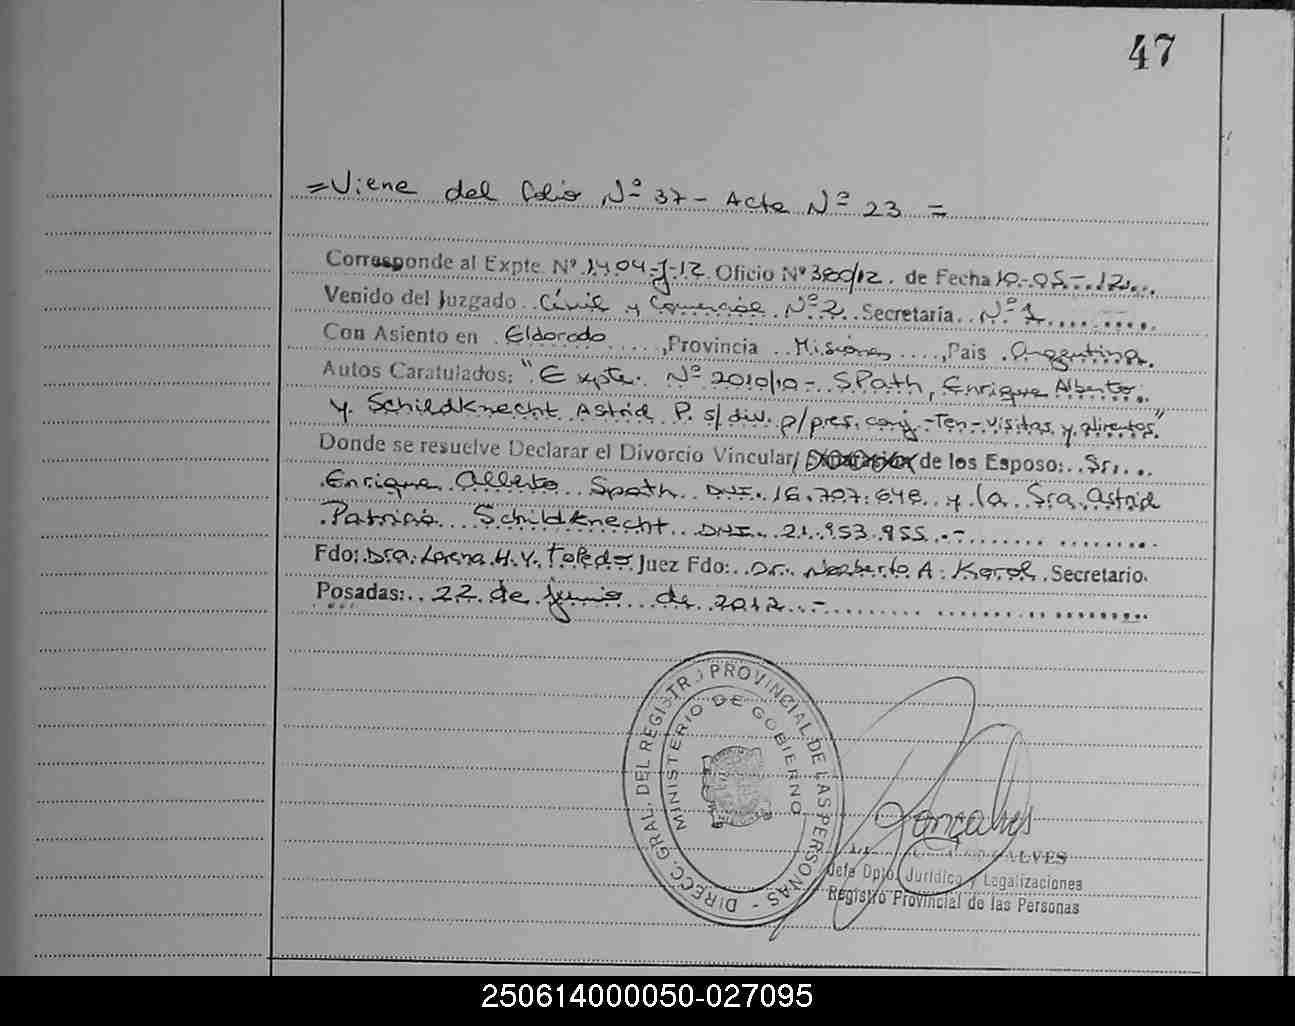 47
=Viene del folio Nº 37- Acta Nº 23 =
Corresponde al Expte. Nº 1404-J-12 Oficio Nº 380/12. de Fecha 10-05-12
Venido del Juzgado Civil y Comercial Nº 2 Secretaría Nº 1
Con Asiento en Eldorado, Provincia Misiones, Pais Argentina.
Autos Caratulados: "Expte. Nº 2010/10- SPath, Enrique Alberto
y Schildknecht Astrid P. s/div. p/pres. conj-Ten-visitas y alimentos"
Donde se resuelve Declarar el Divorcio Vincular/ de los Esposo: Sr.
Enrique Alberto Spath DNI. 16.707.648 y la Sra Astrid
Patricia Schildknecht DNI. 21.953.955.-
Fdo: Dra. Lorena H. V. Toledo Juez Fdo: Dr. Norberto A. Korol. Secretario.
Posadas: 22 de junio de 2012.-
DIRECC. GRAL. DEL REGISTRO PROVINCIAL DE LAS PERSONAS -
MINISTERIO DE GOBIERNO
Gonçalves
Jefe Dpto. Jurídico y Legalizaciones
Registro Provincial de las Personas
250614000050-027095